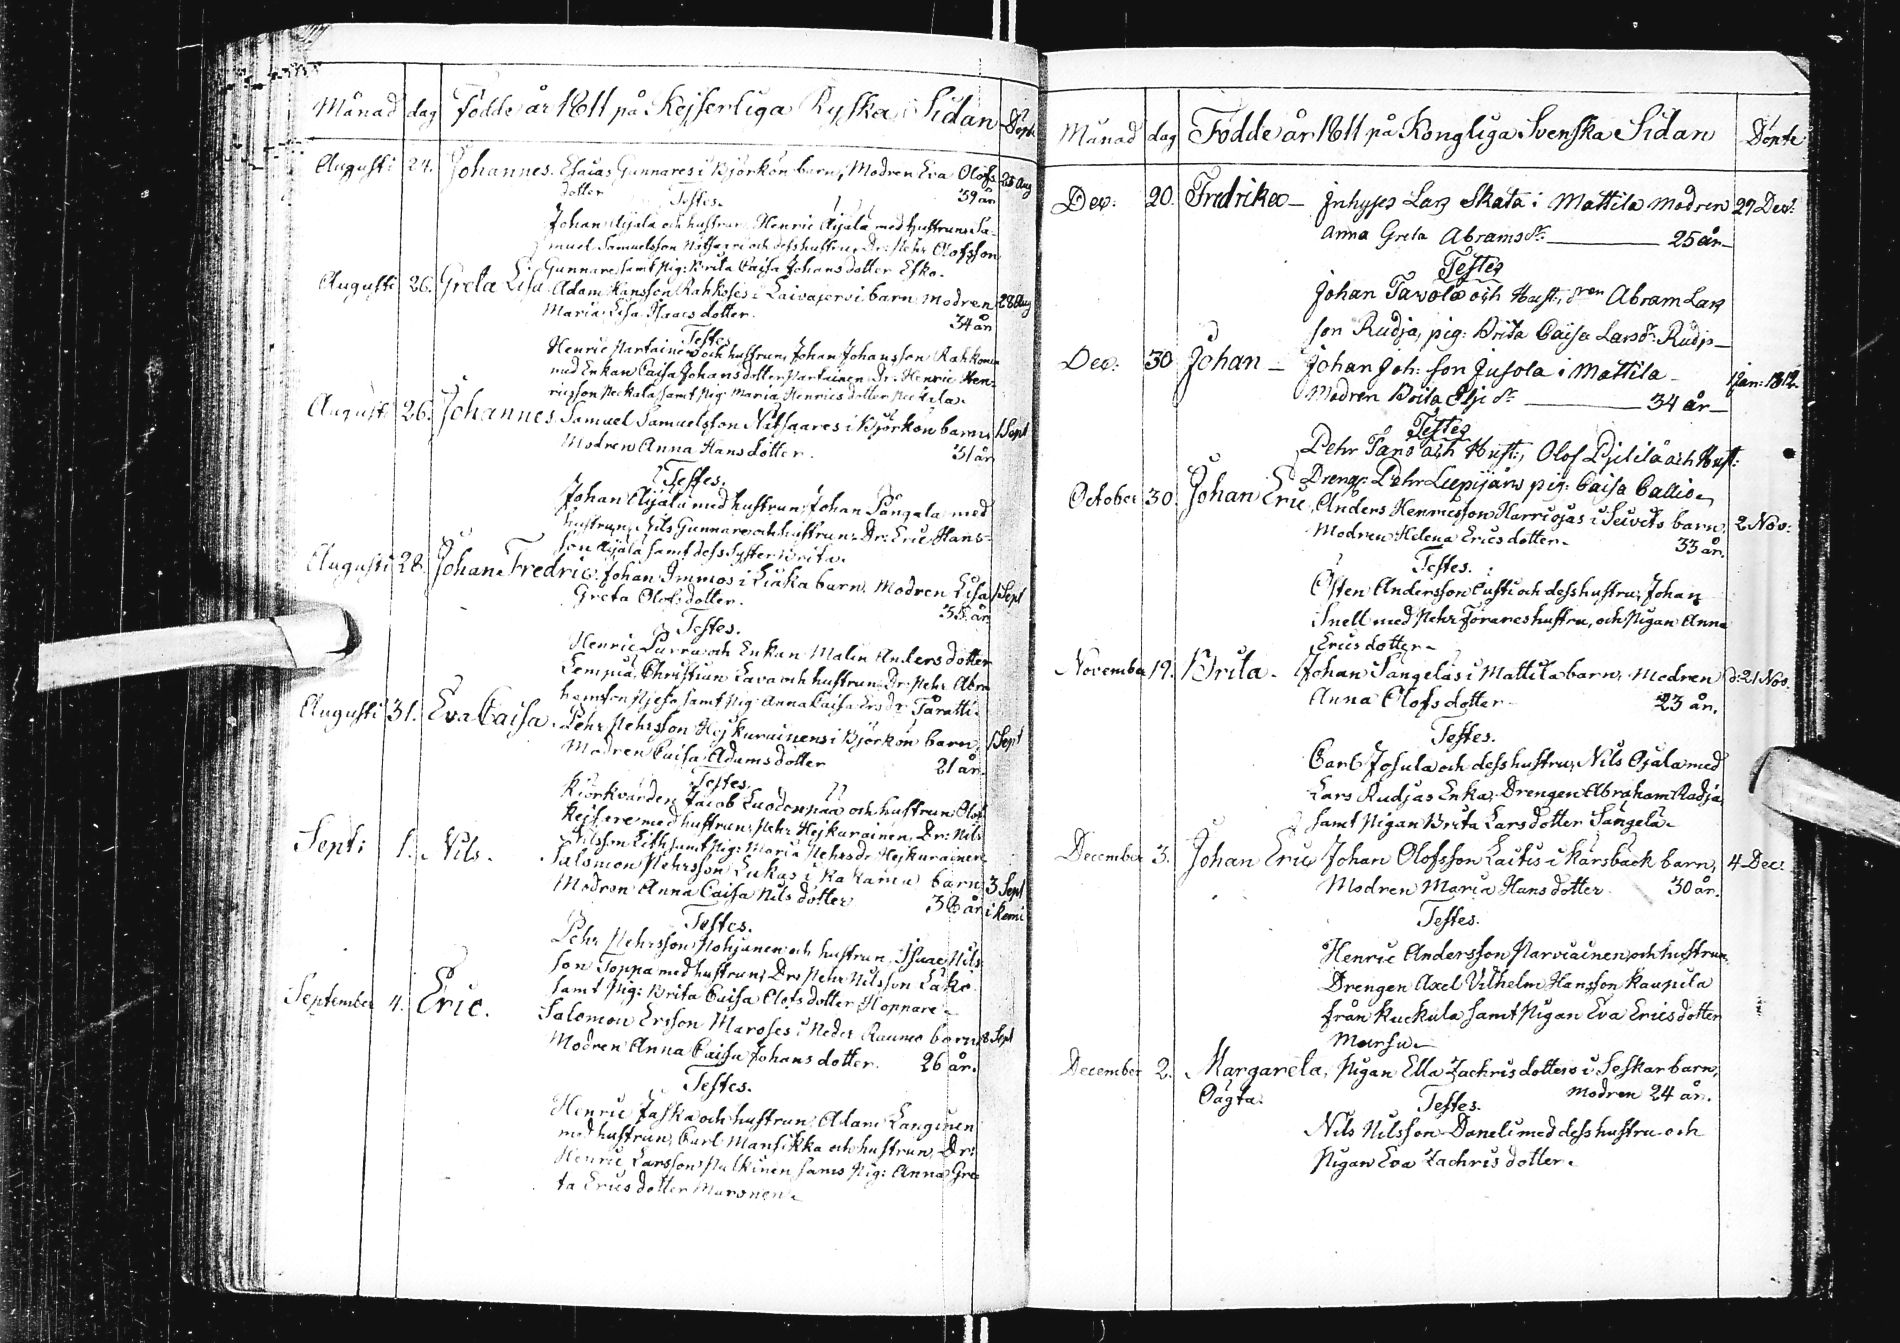 Månad dag Födde år 1811 på Kejserliga Ryska Sidan Döpte
Augusti 24. Johannes. Esaias Gunnares i Björkön barn, Modren Eva Olofs 25 Aug
dotter 39 år
Testes.
Johan Äijälä och hustrun, Henric Äijälä med hustrun, Sa-
muel Samuelsson och dess hustru, Dr: Pehr Olofsson
Gunnare, samt Pig: Brita Caisa Johansdotter Esko.
Augusti 26. Greta Lisa Adam Hansson Rahkoses i Laivajervi barn, Modren 28 Aug
Maria Lisa Isaacs dotter. 34 år
Testes
Henric Partainen och hustrun, Johan Johansson Rahkonen
med Enkan Caisa Johansdotter Partainen, Dr: Henric Hen-
ricsson Neckala, samt Pig: Maria Henrics dotter Neckala.
Augusti 26. Johannes Samuel Samuelsson i Björkön barn, 1 Sept
Modren Anna Hansdotter. 31 år
Testes.
Johan Äijälä med hustrun, Johan Pångala med
hustrun, Nils Gunnare och hustrun, Dr: Eric Hans-
son Äijälä samt dess Syster Brita.
Augusti 28. Johan Fredric. Johan Immos i Liaka barn, Modren Lisa 1 Sept
Greta Olofsdotter. 35 år
Testes.
Henric Purra och Enkan Malin Andersdotter
Lempiä, Christian Lava och hustrun, Dr: Pehr Abra
hamsson samt Pig: Anna Caisa Ersdr
Augusti 31. Eva Caisa. Pehr Pehrsson Hejkurainens i Björkön barn, 1 Sept
Modren Caisa Adamsdotter 21 år.
Testes.
Kÿrkvärden Jacob Luodonpää och hustrun, Olof
Kejsare med hustrun, Pehr Hejkurainen, Dr: Nils
Nilsson Lith samt Pig: Maria Pehrsdr Hejkurainen.
Sept: 1. Nils. Salomon Pehrsson Lukas i Kakama barn 3 Sept
Modren Anna Caisa Nilsdotter 36 år i Kemi
Testes.
Pehr Pehrsson Pohjanen och hustrun, Isaac Nils
son Toppa med hustrun, Dr: Pehr Nilsson
samt Pig: Brita Caisa Olofsdotter Hoppare.
September 4. Eric. Salomon Ersson Maroses i Neder Raumo barn 8 Sept
Modren Anna Caisa Johansdotter. 26 år.
Testes.
Henric Jaska och hustrun, Adam Langinen
med hustrun, Carl Mansikka och hustrun, Dr:
Henric Larsson Pulkinen samt Pig: Anna Gre
ta Erics dotter Maronen.
Månad dag Födde år 1811 på Kongliga Svenska Sidan Döpte
Dec: 20. Fredrika – Inhyses Lars Skata i Mattila Modren 27 Dec:
Anna Greta Abrams dr. 25 år –
Testes
Johan Tavola och Hust:, Abram Lars
son Rudja, pig: Brita Caisa Lars dr. Rudja
Dec: 30 Johan – Johan Joh: son Jusola i Mattila – 1 Jan: 1812
Modren Brita dr. 34 år –
Testes
Pehr Tano och Hust:, Olof och Hust:
Dreng: Pehr pig: Caisa
October 30. Johan Eric Anders Henricsson Harriojas i Seivits barn, 2 Nov:
Modren Helena Ericsdotter. 33 år.
Testes.
Östen Andersson Custi och dess hustru, Johan
Snell med Pehr Förares hustru, och Pigan Anna
Erics dotter.
November 19. Brita. Johan Sangelas i Mattila barn, Modren d: 21 Nov.
Anna Olofsdotter 23 år.
Testes.
Carl Josula och dess hustru, Nils Ojala med
Lars Rudjas Enka, Drengen Abraham Radja
samt Pigan Brita Larsdotter Sangela.
December 3. Johan Eric Johan Olofsson Laitis i Karsbäck barn, 4 Dec:
Modren Maria Hansdotter. 30 år.
Testes.
Henric Andersson Parviainen och hustrun
Drengen Axel Vilhelm Hansson Kaupila
från Kuckula samt Pigan Eva Ericsdotter
Marsu.
December 2. Margareta, Pigan Ella Zachrisdotters i Seskar barn,
Oägta. Modren 24 år.
Testes.
Nils Nilsson Daneli med dess hustru och
Pigan Eva Zachris dotter.